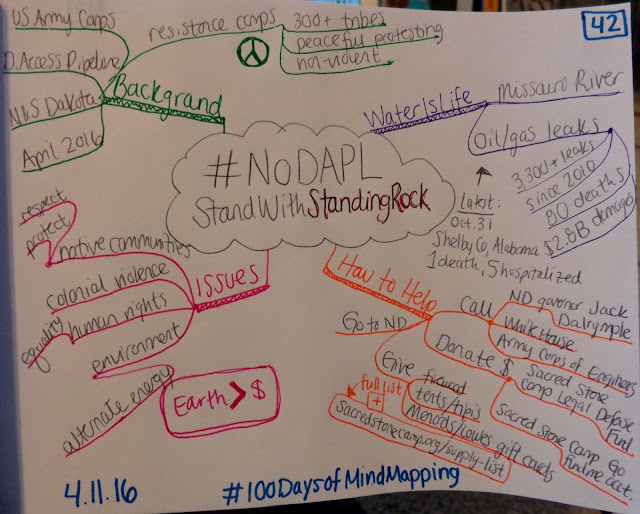 42
#NODAPL
StandWithStandingRock
Backgrand
US Army Corps
D.Access Pipeline
N&S Dakota
April 2016
resistence camps
300+ tribes
peaceful protesting
non-violent
WaterIsLife
Missauri River
Oil/gas leaks
3,300+ leaks
since 2010
80 deaths
$2.8B damages
Latest:
Oct.31
Shelby Co, Alabama
1 death, 5 hospitalized
Issues
native communities
respect
protect
colonial violence
human rights
equality
environment
alternate energy
Earth > $
How to Help
Call
ND govenor Jack
Dalrymple
White House
Army Corps of Engineers
Donate $
Sacred Stone
Camp Legal Defose
Fund
Sacred Stone Camp Go
fundme acct.
Go to ND
Give
tents/tipi's
Menards/Lowes gift cards
full list
+
sacredstonecamp.org/supply-list
4.11.16
#100DaysofMindMapping